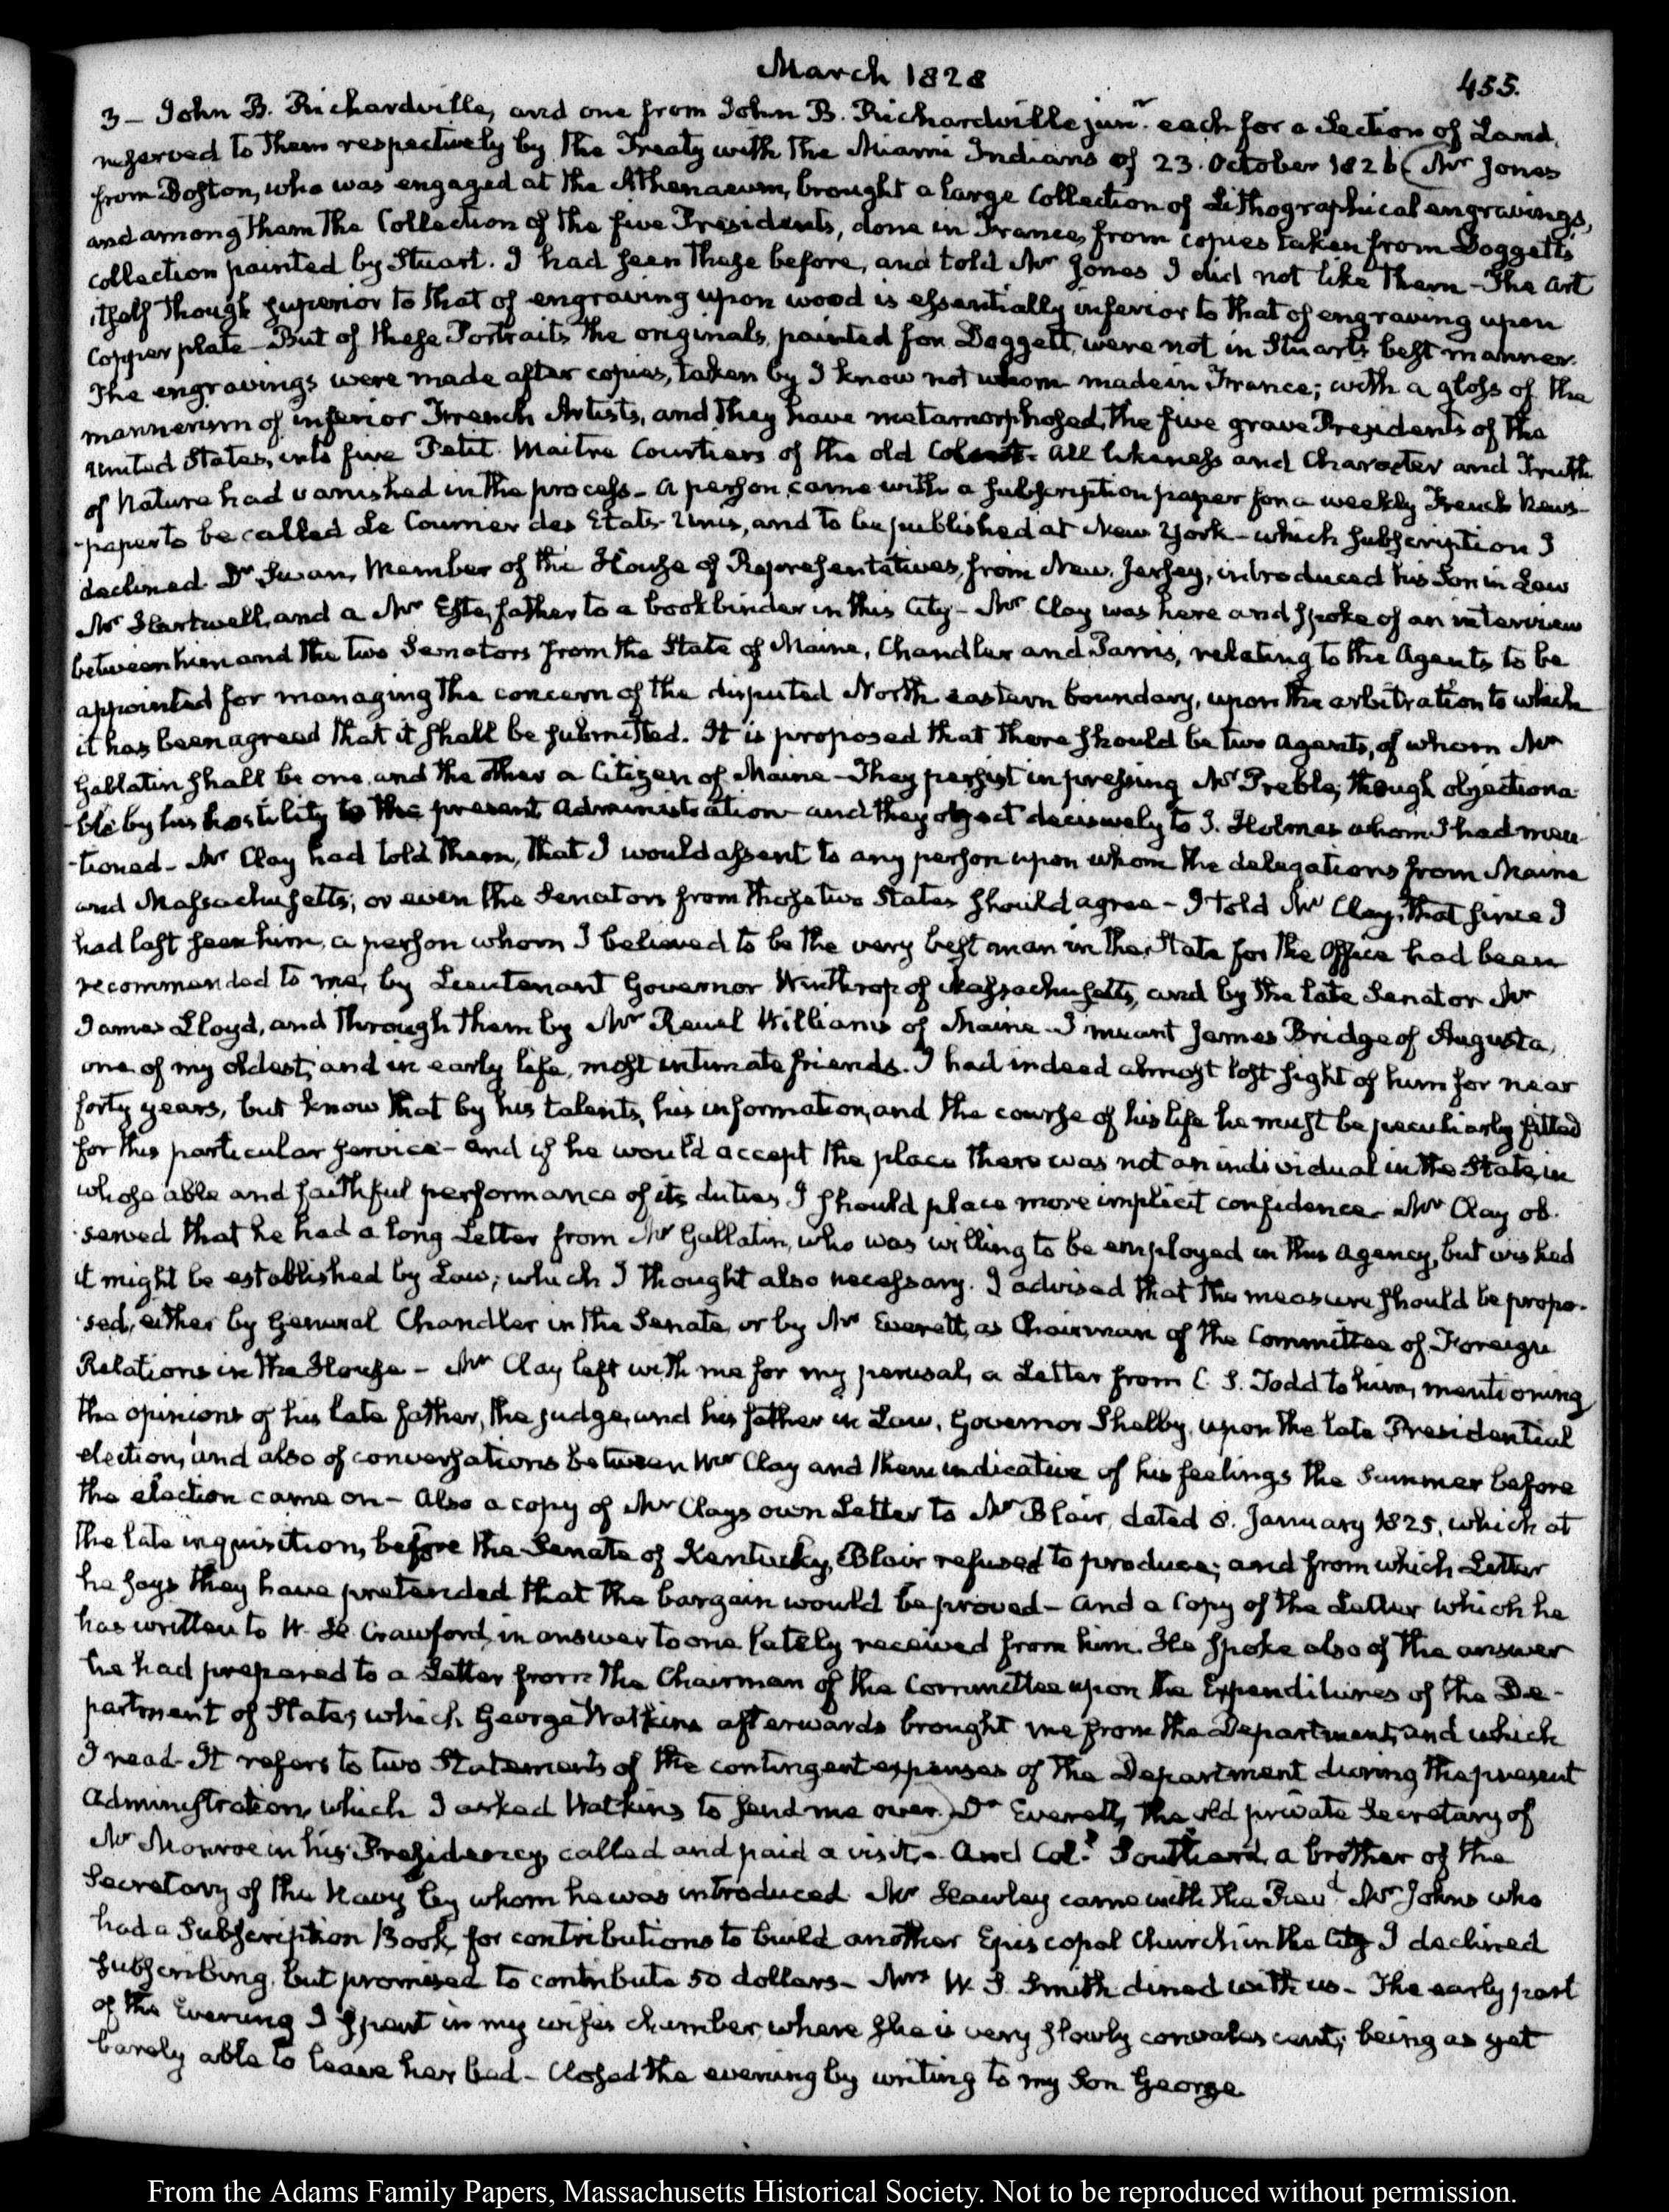 March 1828
455.
3 – John B. Richardville, and one from John B. Richardville jun.r each for a Section of Land,
reserved to them respectively by the Treaty with the Miami Indians of 23. October 1826 (Mr Jones
from Boston, who was engaged at the Athenaeum, brought a large Collection of Lithographical engravings,
and among them the Collection of the five Presidents, done in France, from copies taken from Doggett's
collection painted by Stuart. I had seen these before, and told Mr Jones I did not like them – The art
itself though superior to that of engraving upon wood is essentially inferior to that of engraving upon
Copper plate – But of these Portraits the originals, painted for Doggett, were not in Stuart's best manner.
The engravings were made after copies, taken by I know not whom made in France; with a gloss of the
mannerism of inferior French Artists, and they have metamorphosed, the five grave Presidents of the
United States, into five Petit Maitre Courtiers of the old Court. All likeness and Character and Truth
of Nature had vanished in the process – A person came with a subscription paper for a weekly French News-
-paper to be called Le Courrier des Etats-Unis, and to be published at New York – which subscription I
declined Dr Swan, Member of the House of Representatives, from New Jersey, introduced his Son in Law
Mr Hartwell, and a Mr Este, father to a bookbinder in this City – Mr Clay was here and spoke of an interview
between him and the two Senators from the State of Maine, Chandler and Parris, relating to the Agents to be
appointed for managing the concern of the disputed North eastern boundary, upon the arbitration to which
it has been agreed that it shall be submitted. It is proposed that there should be two Agents, of whom Mr
Gallatin shall be one, and the other a Citizen of Maine – They persist in pressing Mr Preble, though objectiona-
-ble by his hostility to the present Administration – and they object decisively to J. Holmes whom I had men-
-tioned – Mr Clay had told them, that I would assent to any person upon whom the delegations from Maine
and Massachusetts, or even the Senators from those two States should agree – I told Mr Clay, that since I
had last seen him, a person whom I believed to be the very best man in the State for the Office had been
recommended to me, by Lieutenant Governor Winthrop of Massachusetts, and by the late Senator Mr
James Lloyd, and through them by Mr Reuel Williams of Maine – I meant James Bridge of Augusta,
one of my oldest, and in early life, most intimate friends. I had indeed almost lost sight of him for near
forty years, but know that by his talents, his information, and the course of his life he must be peculiarly fitted
for this particular service – and if he would accept the place there was not an individual in the State, in
whose able and faithful performance of its duties I should place more implicit confidence – Mr Clay ob-
served that he had a long Letter from Mr Gallatin, who was willing to be employed in this Agency, but wished
it might be established by Law; which I thought also necessary. I advised that the measure should be propo-
sed, either by General Chandler in the Senate, or by Mr Everett, as Chairman of the Committee of Foreign
Relations in the House – Mr Clay left with me for my perusal, a Letter from C. S. Todd to him, mentioning
the opinions of his late father, the judge, and his father in Law, Governor Shelby, upon the late Presidential
election, and also of conversations between Mr Clay and them indicative of his feelings the Summer before
the election came on – Also a copy of Mr Clays own Letter to Mr Blair, dated 8. January 1825, which at
the late inquisition, before the Senate of Kentucky, Blair refused to produce; and from which Letter
he says they have pretended that the bargain would be proved – and a Copy of the Letter which he
has written to W. H. Crawford, in answer to one lately received from him. He spoke also of the answer
he had prepared to a Letter from the Chairman of the Committee upon the Expenditures of the De-
partment of State, which George Watkins afterwards brought me from the Department, and which
I read – It refers to two Statements of the contingent expenses of the Department during the present
Administration, which I asked Watkins to send me over.) Dr Everett, the old private Secretary of
Mr Monroe in his Presidency, called and paid a visit – And Col.l Southard, a brother of the
Secretary of the Navy by whom he was introduced Mr Hawley came with the Revd Mr Johns who
had a Subscription Book, for contributions to build another Episcopal Church in the City I declined
subscribing, but promised to contribute 50 dollars – Mrs W. S. Smith dined with us – The early part
of the Evening I spent in my wife's chamber, where she is very slowly convalescent; being as yet
barely able to leave her bed – Closed the evening by writing to my Son George
From the Adams Family Papers, Massachusetts Historical Society. Not to be reproduced without permission.